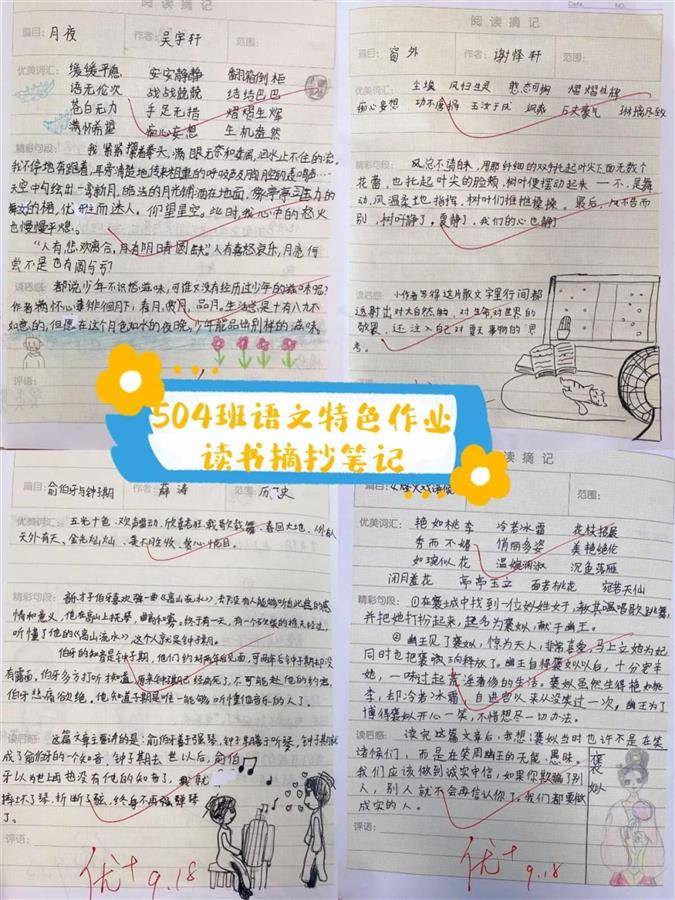 阅读摘记
篇目：月夜 作者：吴宇轩 范围：
优美词汇：缓缓平息 安安静静 翻箱倒柜
语无伦次 战战兢兢 结结巴巴
苍白无力 手足无措 熠熠生辉
满怀希望 痴心妄想 生机盎然
精彩句段：我紧紧攥着拳头，满眼无奈和委屈，泪水止不住的流。
天空中勾绘出一弯新月，皎洁的月光铺洒在地面，
而迷人。仰望星空，此时，我心中的怒火
也慢慢平熄。
"人有悲欢离合，月有阴晴圆缺"。人有喜怒哀乐，月亮何
尝不是也有圆亏？
读后感：都说少年不识愁滋味，可谁又没有经历过少年的滋味呢？
作者满怀心事徘徊月下，看月，赏月，品月。生活总是十有八九不
如意的，但愿在这个月色如水的夜晚，少年能品出别样的滋味。
评语：
Date. NO.
阅读摘记
篇目：窗外 作者：谢怿轩 范围：
优美词汇：尘埃 风扫生灵 憨态可掬 熠熠生辉
痴心妄想 功不唐捐 玉汝于成 飒飒 万丈豪气 淋漓尽致
精彩句段：风忽不请自来，用那纤细的双手托起叶尖下面无数个
花蕾，也托起叶尖的脸颊，树叶便摆动起来——不，是舞
动，风温柔地指挥，树叶们推推搡搡。最后，风不告而
别，树叶静了。夏静了，我们的心也静了
读后感：小作者写得这片散文字里行间都
透射出对大自然的，对生命，对世界的
敬畏，还注入自己对夏天事物的思
考。
评语：
504班语文特色作业
读书摘抄笔记
篇目：俞伯牙与钟子期 作者：薛涛 历史
优美词汇：五光十色、欢声雷动、欣喜若狂、载歌载舞、春回大地、
天外有天、金光灿灿、美不胜收、赏心悦目。
精彩句段：
听懂了他的《高山流水》这个人就是钟子期。
伯牙的知音是钟子期，他们约好两年后见面，可两年后钟子期却没
有露面，伯牙多方打听才知道，原来钟子期已经病死了，不可能赴他的约.
伯牙悲痛欲绝。他知道子期是唯一能够听懂他音乐的人了。
读后感：这篇文章主要讲的是：俞伯牙善于弹琴，钟子期善于听琴，钟子期就
成了俞伯牙的一个知音，钟子期去世以后，俞伯
牙认为世上再也没有他的知音了，
摔坏了琴，折断了弦，终身不再弹琴
了。
评语：
优+ 9.18
阅读摘记
范围：
优美词汇：艳如桃李 冷若冰霜 花枝招展
秀而不媚 俏丽多姿 美艳绝伦
如琬似花 温婉娴淑 沉鱼落雁
闭月羞花 亭亭玉立 面若桃花 宛若天仙
精彩句段：①在褒城中找到一位妙姓女子，教其唱歌跳舞，
并把她打扮起来，起名为褒姒，献于幽王。
②幽王见了褒姒，惊为天人，非常喜爱，马上立她为妃，
同时也把褒珦释放了。幽王自得褒姒以后，十分宠幸
她，一味过起荒淫奢侈的生活。褒姒虽然生得艳如桃
李，却冷若冰霜，自进宫以来从没笑过一次，幽王为了
博得褒姒开心一笑，不惜想尽一切办法。
读后感：读完这篇文章后，我想：褒姒当时也许不是在笑
诸侯们，而是在笑周幽王的无能、愚昧。
我们应该做到诚实守信，如果你欺骗了别
人，别人就不会再信认你了。我们都要做
诚实的人。
褒姒
评语：
优+ 9.18